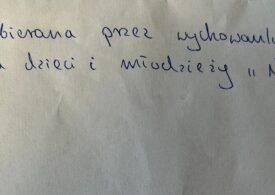 bierana przez wychowank
dzieci i młodzieży „